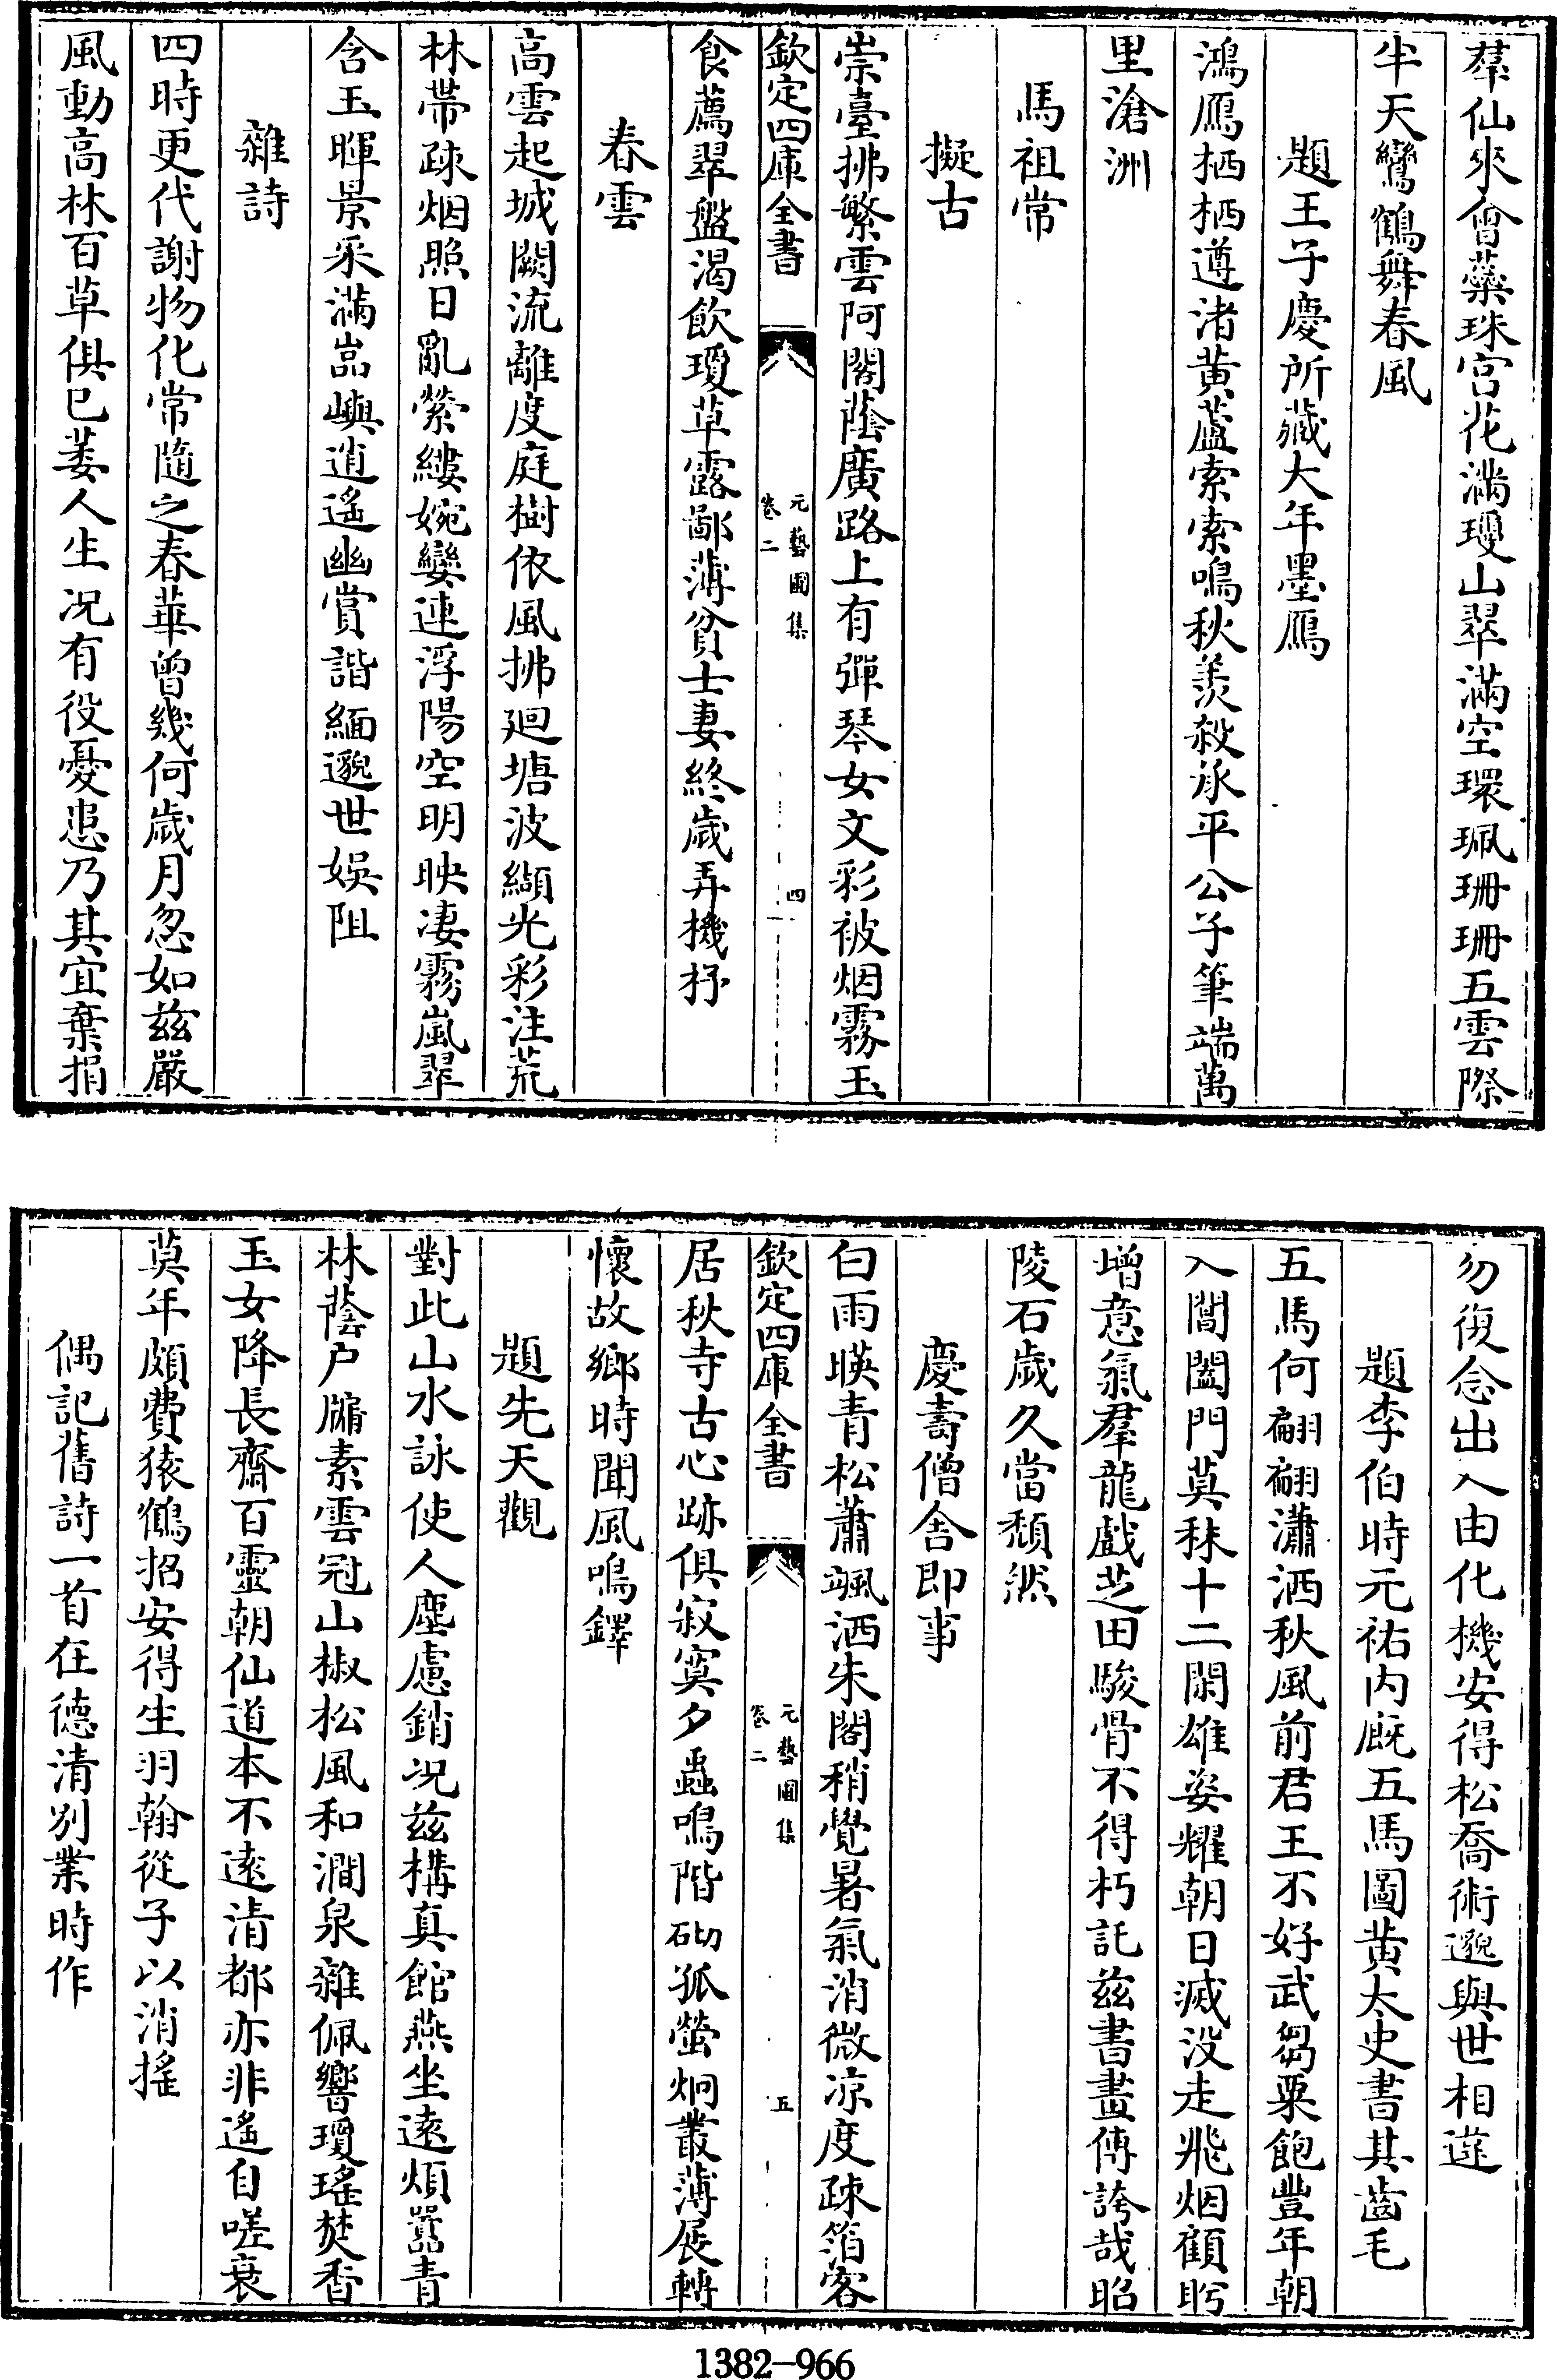 羣仙來會蘂珠宫花滿瓊山翠滿空環珮珊珊五雲際
半天鸞鶴舞春風
題王子慶所藏大年墨鴈
鴻鴈栖栖遵渚黄蘆索索鳴秋羨殺承平公子筆端萬
里滄洲
馬祖常
擬古
崇臺拂繁雲阿閣蔭廣路上有彈琴女文彩被烟霧玉
欽定四庫全書
元藝圃集
卷二
四
食薦翠盤渴飲瓊草露鄙薄貧士妻終歲弄機杼
春雲
高雲起城闕流離度庭樹依風拂廻塘波纈光彩注荒
林帶疎烟照日亂縈縷婉孌連浮陽空明映凄霧嵐翠
含玉暉景采滿嵓嶼逍遙幽賞諧緬邈世娛阻
雜詩
四時更代謝物化常隨之春華曾幾何歲月忽如兹嚴
風動高林百草俱已萎人生况有役憂患乃其宜棄捐
勿復念出入由化機安得松喬術邈與世相違
題李伯時元祐内厩五馬圖黄太史書其齒毛
五馬何翩翩瀟洒秋風前君王不好武芻粟飽豐年朝
入閶闔門莫秣十二閑雄姿耀朝日滅没走飛烟顧盻
增意氣羣龍戲芝田駿骨不得朽託兹書畫傳誇哉昭
陵石歲久當頽然
慶壽僧舍即事
白雨暎青松蕭颯洒朱閣稍覺暑氣消微凉度疎箔客
欽定四庫全書
元藝圃集
卷二
五
居秋寺古心跡俱寂寞夕蟲鳴階砌孤螢炯叢薄展轉
懷故鄉時聞風鳴鐸
題先天觀
對此山水詠使人塵慮銷况兹構真館燕坐遠煩囂青
林蔭户牖素雲冠山椒松風和澗泉雜佩響瓊瑤焚香
玉女降長齋百靈朝仙道本不遠清都亦非遙自嗟衰
莫年頗費猿鶴招安得生羽翰從子以消摇
偶記舊詩一首在德清别業時作
1382-966